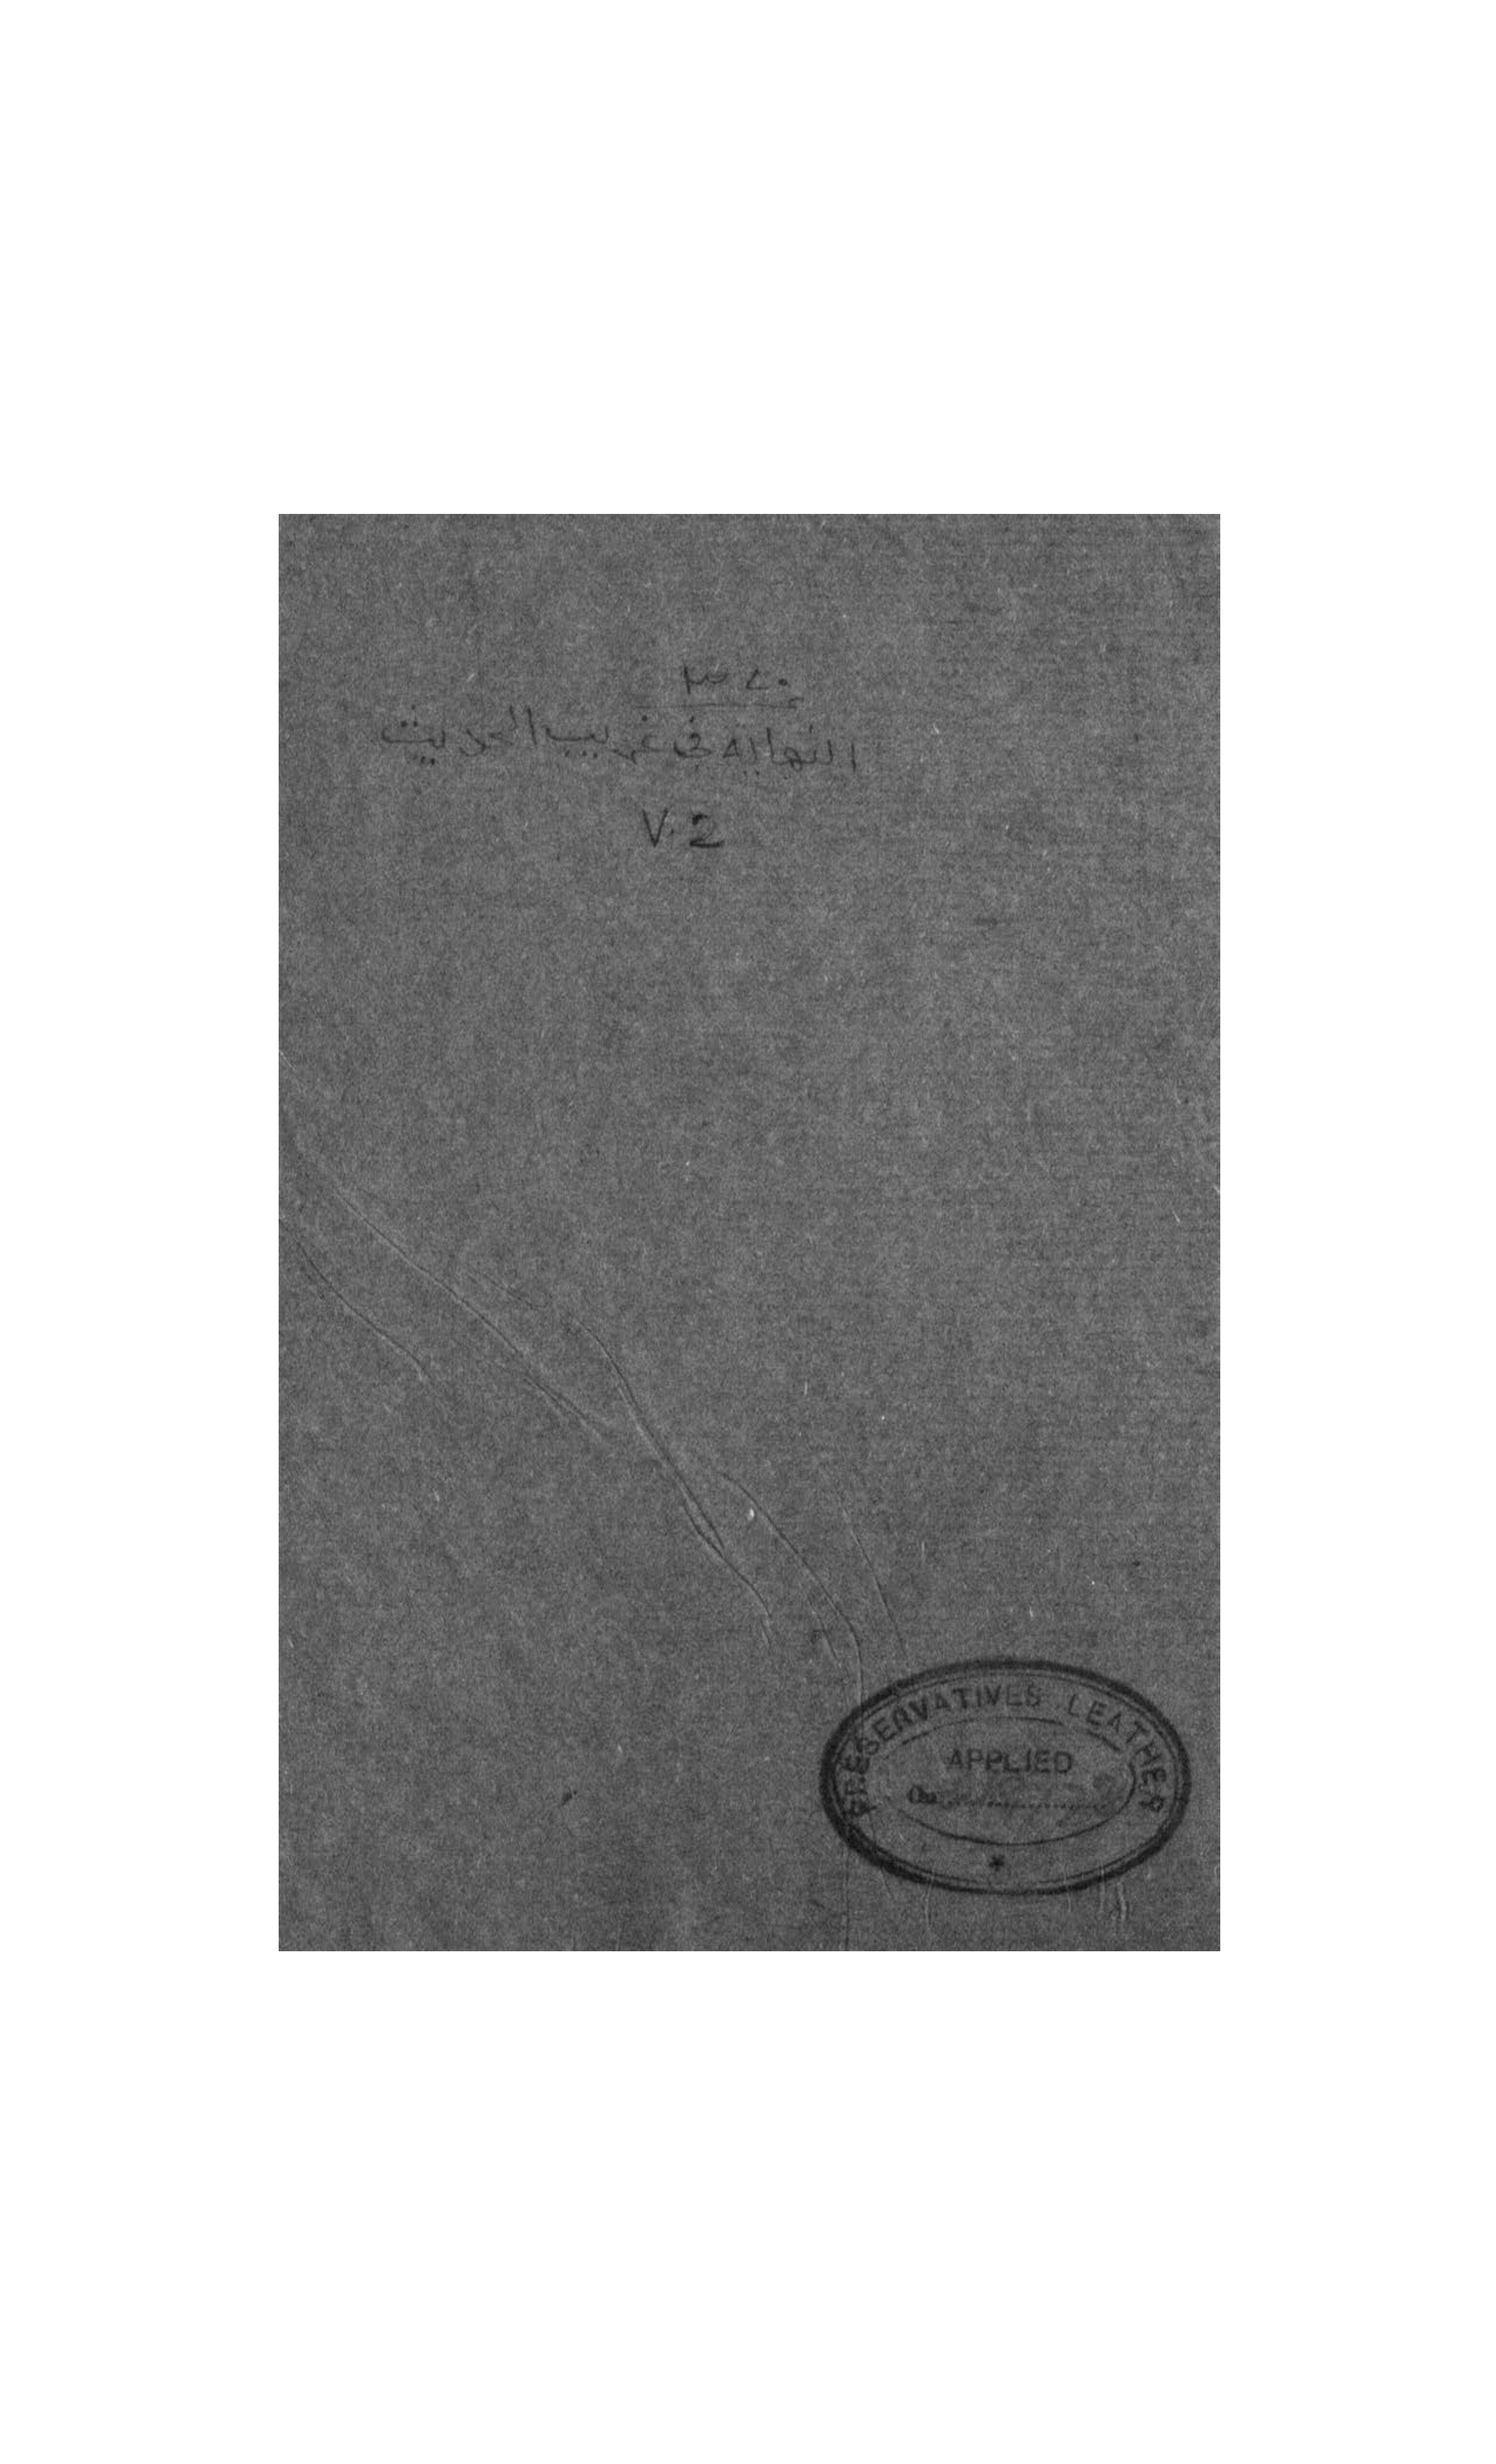 النهاية في غريب الحديث
V. 2
PRESERVATIVES LEATHER
APPLIED
On
*